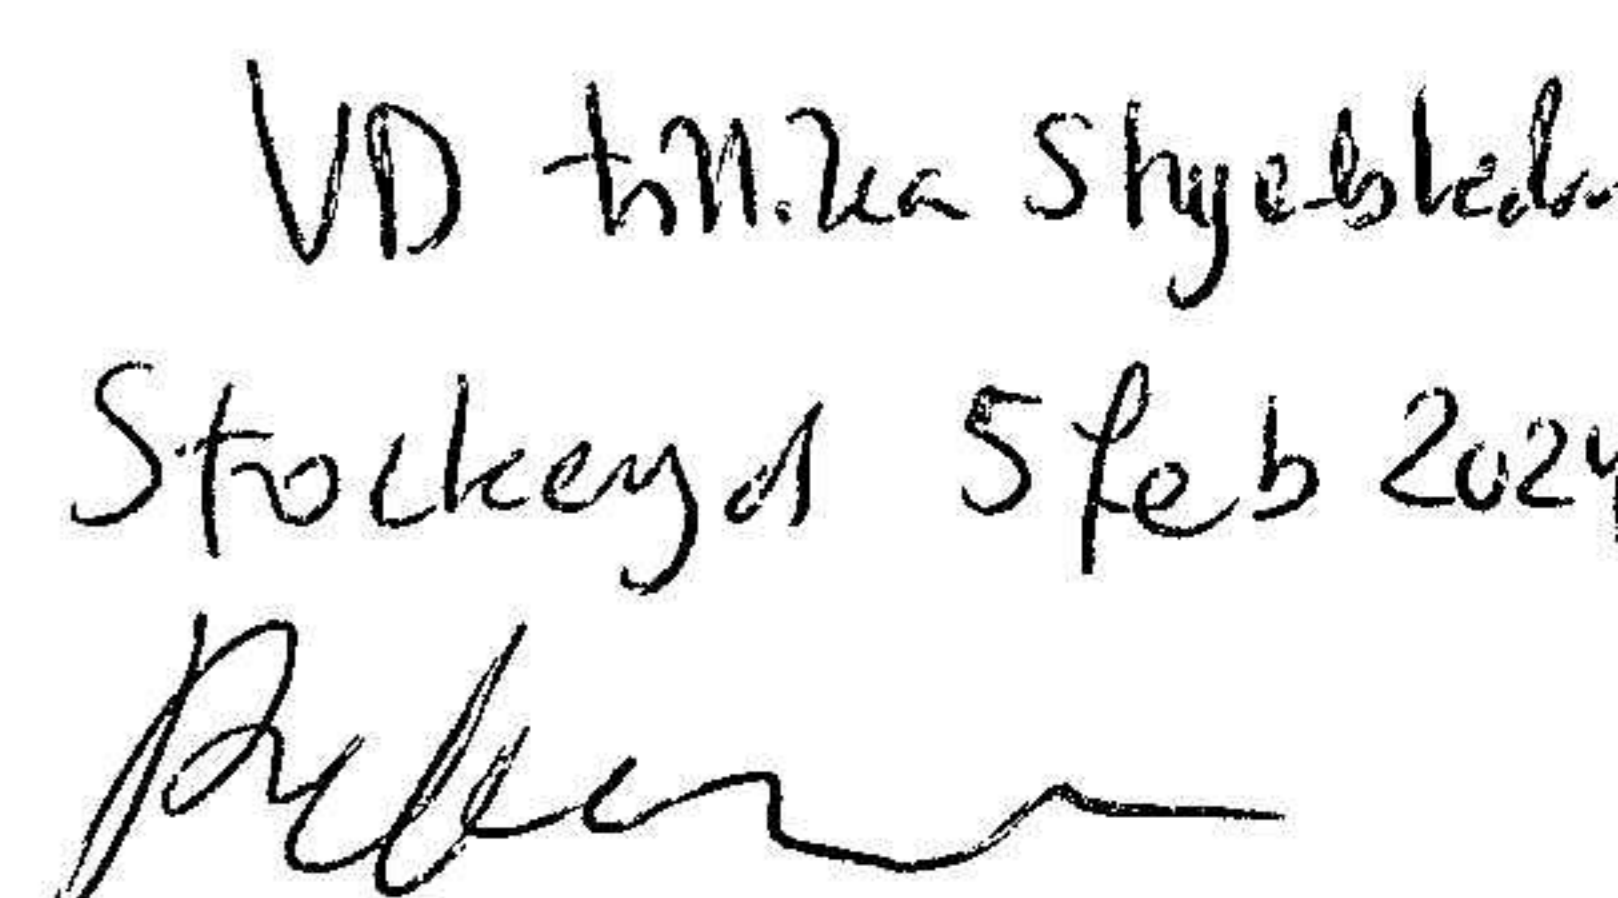 VD tillika Styrelseledam
Stockeryd 5 feb 2024